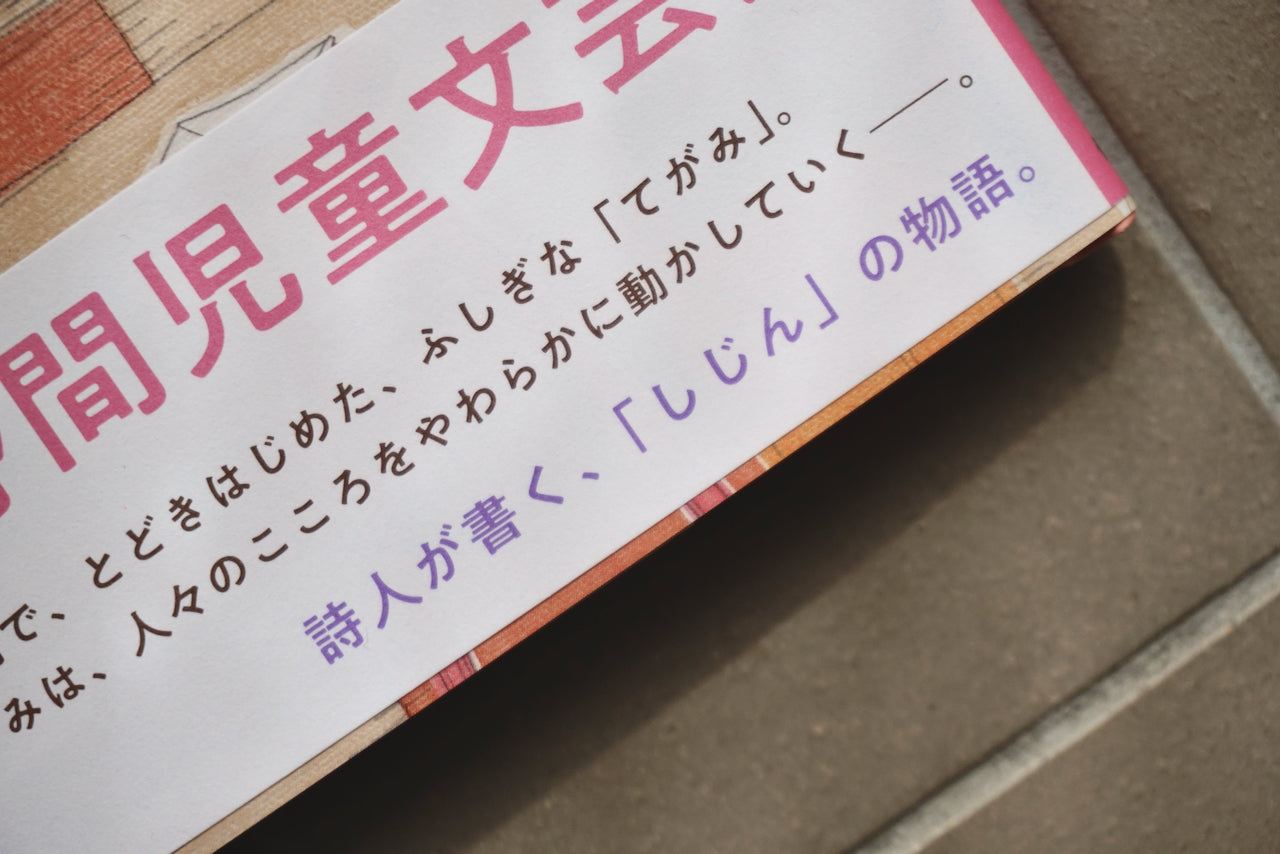 間児童文芸
で、とどきはじめた、ふしぎな「てがみ」。
みは、人々のこころをやわらかに動かしていく――。
詩人が書く、「しじん」の物語。